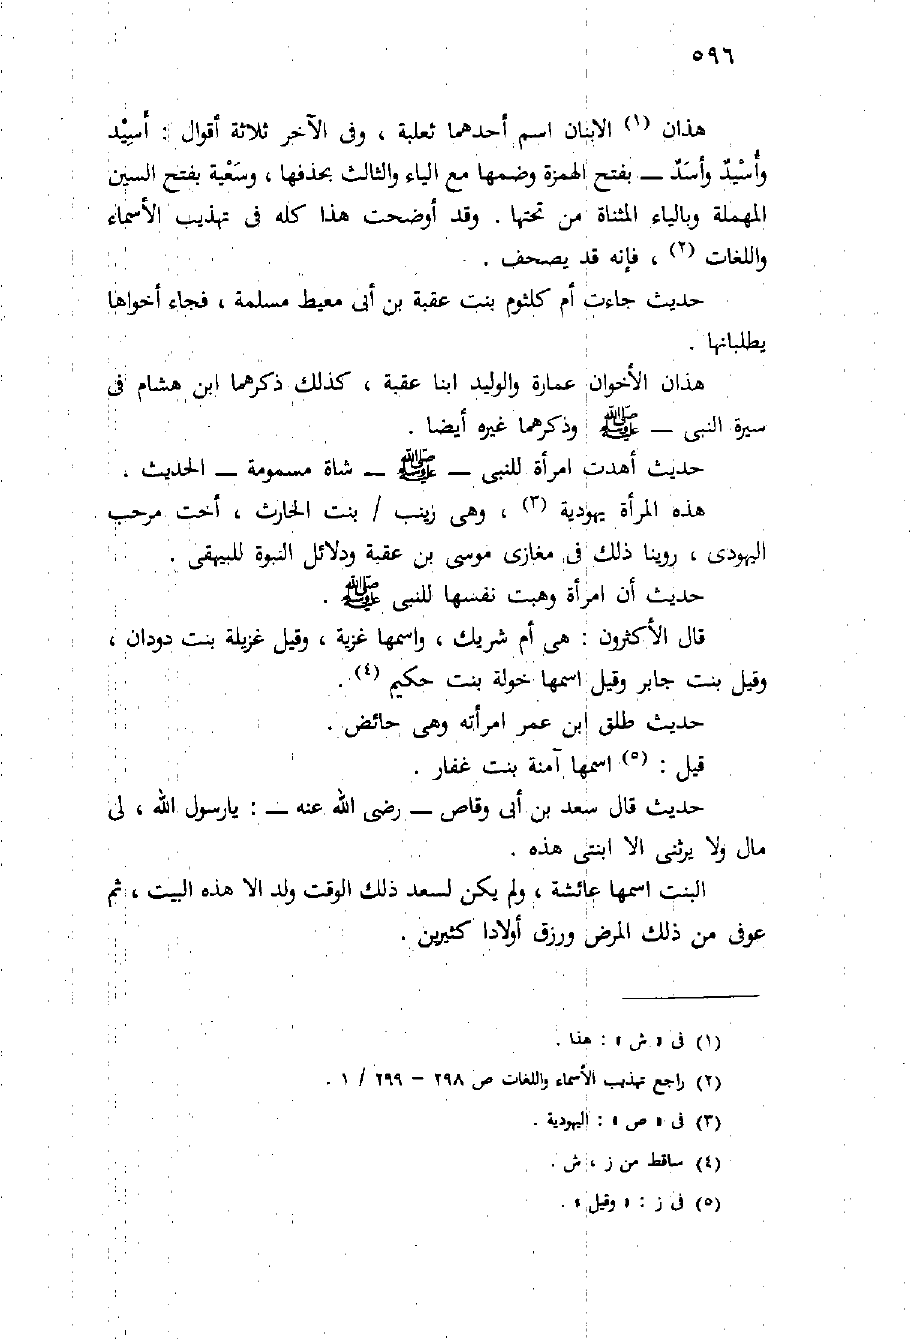 ٥٩٦
هذان (١) الابنان اسم أحدهما ثعلبة ، وفى الآخر ثلاثة أقوال : أَسِيْد
وأُسْيدٌ وأَسَدٌ — بفتح الهمزة وضمها مع الياء والثالث بحذفها ، وسَعْية بفتح السين
المهملة وبالياء المثناة من تحتها . وقد أوضحت هذا كله فى تهذيب الأسماء
واللغات (٢) ، فإنه قد يصحف .
حديث جاءت أم كلثوم بنت عقبة بن أبى معيط مسلمة ، فجاء أخواها
يطلبانها .
هذان الأخوان عمارة والوليد ابنا عقبة ، كذلك ذكرهما ابن هشام فى
سيرة النبى — ﷺ وذكرهما غيره أيضا .
حديث أهدت امرأة للنبى — ﷺ — شاة مسمومة — الحديث .
هذه المرأة يهودية (٣) ، وهى زينب / بنت الحارث ، أخت مرحب
اليهودى ، روينا ذلك فى مغازى موسى بن عقبة ودلائل النبوة للبيهقى .
حديث أن امرأة وهبت نفسها للنبى ﷺ .
قال الأكثرون : هى أم شريك ، واسمها غزية ، وقيل غزيلة بنت دودان ،
وقيل بنت جابر وقيل اسمها خولة بنت حكيم (٤) .
حديث طلق ابن عمر امرأته وهى حائض .
قيل : (٥) اسمها آمنة بنت غفار .
حديث قال سعد بن أبى وقاص — رضى الله عنه — : يارسول الله ، لى
مال ولا يرثنى الا ابنتى هذه .
البنت اسمها عائشة ، ولم يكن لسعد ذلك الوقت ولد الا هذه البيت ، ثم
عوفى من ذلك المرض ورزق أولادا كثيرين .
(١) فى « ش » : هنا .
(٢) راجع تهذيب الأسماء واللغات ص ٢٩٨ – ٢٩٩ / ١ .
(٣) فى « ص » : اليهودية .
(٤) ساقط من ز ، ش .
(٥) فى ز : « وقيل » .